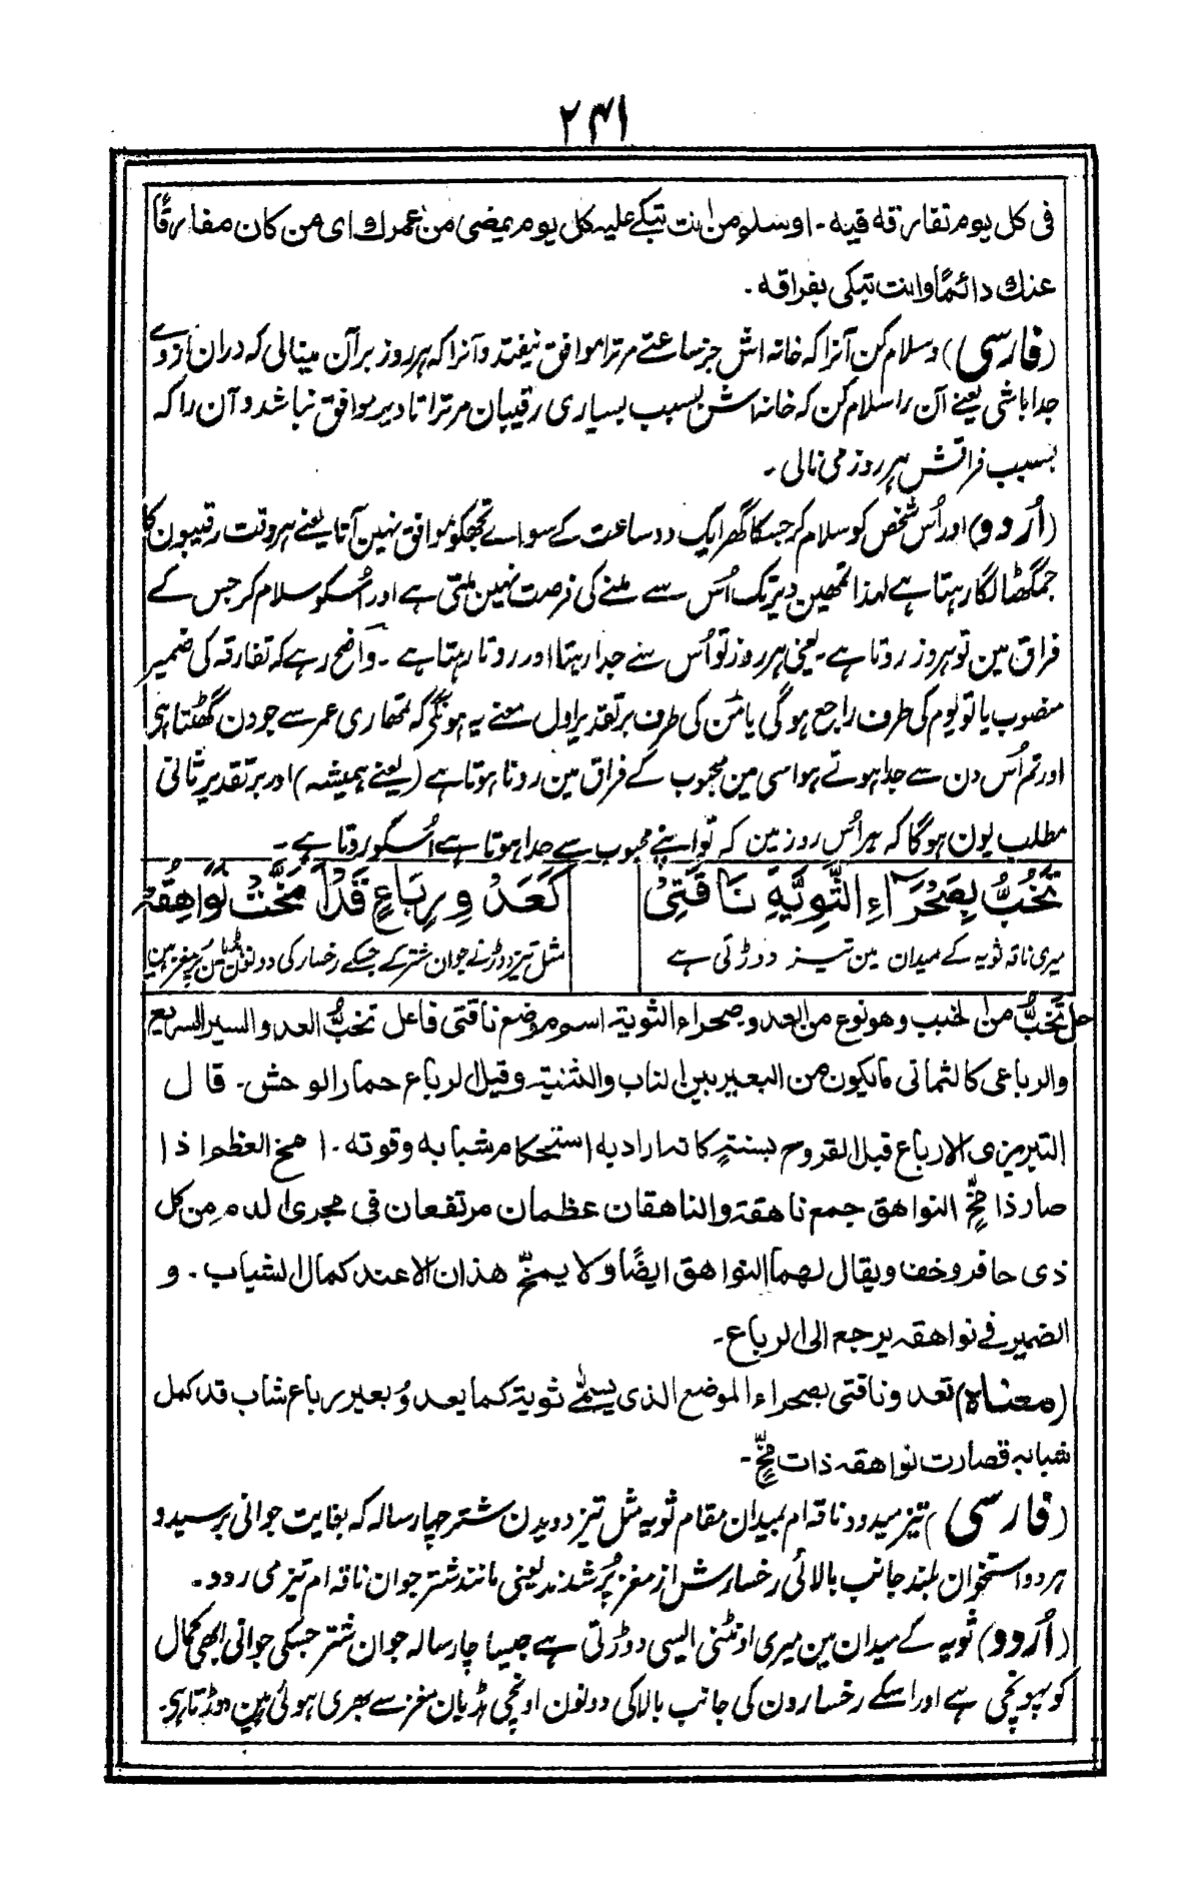 ۲۴۱
فی کل یوم تفارقه فیه۔ او سلم من انت تبکے علیہ کل یوم یمضی من عمرك ای من کان مفارقًا
عنك دائمًا وانت تبکی بفراقه۔
(فارسی) وسلام کن آنرا کہ خانہ اش جز ساعتے مر ترا موافق نیفتد و آنرا کہ ہر روز بر آن مینالی کہ دران از وے
جدا باشی یعنے آن را سلام کن کہ خانہ اش بسبب بسیاری رقیبان مر ترا تا دیر موافق نباشد و آن را کہ
بسبب فراقش ہر روز می نالی۔
(اُردو) اور اُس شخص کو سلام کر جسکا گھر ایک دو ساعت کے سواے تجھکو موافق نہین آتا یعنے ہر وقت رقیبون کا
جمگھٹا لگا رہتا ہے لہذا تمھین دیر تک اُس سے ملنے کی فرصت نہین ملتی ہے اور اُسکو سلام کر جس کے
فراق مین تو ہر روز روتا ہے۔ یعنی ہر روز تو اُس سے جدا رہتا اور روتا رہتا ہے۔ واضح رہے کہ تفارقہ کی ضمیر
منصوب یا تو یوم کی طرف راجع ہو گی یا من کی طرف بر تقدیر اول معنے یہ ہونگے کہ تمھاری عمر سے جو دن گھٹتا ہی
اور تم اُس دن سے جدا ہوتے ہو اسی مین محبوب کے فراق مین رونا ہوتا ہے (یعنے ہمیشہ) اور بر تقدیر ثانی
مطلب یون ہوگا کہ ہر اُس روز مین کہ تو اپنے محبوب سے جدا ہوتا ہے اُسکو روتا ہے۔
تَخُبُّ بِصَحْرَاءِ الثَّوِیَّةِ نَاقَتِیْ کَعَدْوِ رِبَاعٍ قَدْ اَمَخَّتْ نَوَاهِقُهْ
میری ناقہ ثویہ کے میدان مین تیز دوڑتی ہے مثل تیز دوڑنے جوان شتر کے جسکے رخسار کی دونون ہڈیان پر مغز ہین
حل تَخُبُّ من الخبب وهو نوع من العدو وصحراء الثویة اسم موضع ناقتی فاعل تخبُّ العدو السیر السریع
والرباعی کالثمانی مایکون من البعیر بین الناب والثنیة وقیل الرباع حمار الوحش۔ قال
التبریزی الارباع قبل القروح بسنةٍ کانه اراد به استحکام شبابه وقوته۔ امخ العظم اذا
صار ذا مخٍّ النواهق جمع ناهقة والناهقان عظمان مرتفعان فی مجری الدم من کل
ذی حافر وخف ویقال لهما النواهق ایضًا ولا یمخّ هذان الا عند کمال الشباب۔ و
الضمیر فے نواهقه یرجع الی الرباع۔
(معناہ) تعدو ناقتی بصحراء الموضع الذی یسمّٰے ثویة کما یعدوُ بعیر رباع شاب قد کمل
شبابه فصارت نواهقه ذات مخٍّ۔
(فارسی) تیز میدود ناقہ ام بمیدان مقام ثویہ مثل تیز دویدن شتر چہار سالہ کہ بغایت جوانی پرسید و
ہر دو استخوان بلند جانب بالائی رخسارش از مغز پُر شدند یعنی مانند شتر جوان ناقہ ام تیز می رود۔
(اُردو) ثویہ کے میدان مین میری اونٹنی ایسی دوڑتی ہے جیسا چار سالہ جوان شتر جسکی جوانی ابھی کمال
کو پہونچی ہے اور اسکے رخسارون کی جانب بالا کی دونون اونچی ہڈیان مغز سے بھری ہوئی ہین دوڑتا ہی۔